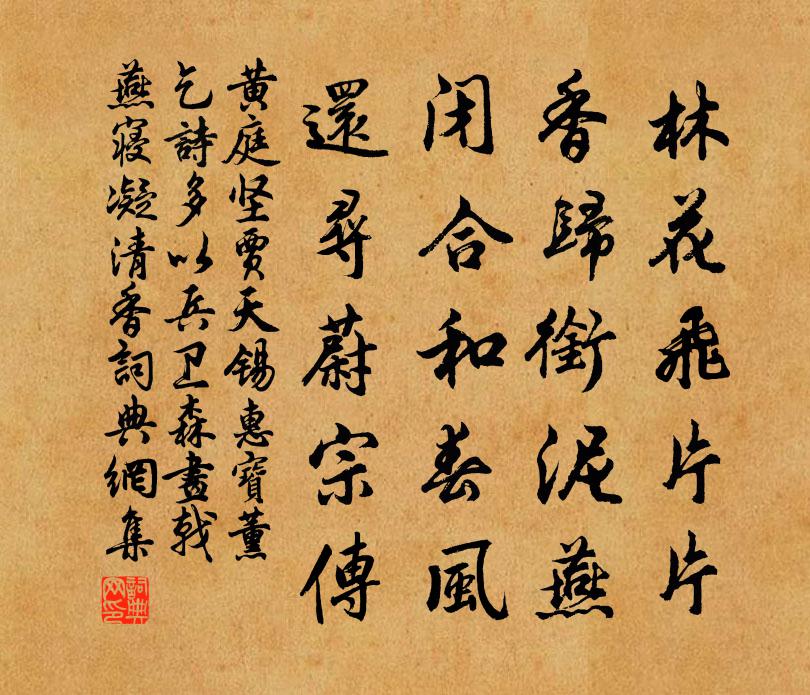 林花飛片片
香歸銜泥燕
閉合和春風
還尋蔚宗傳
黃庭坚賈天錫惠寶薰
乞詩多以兵卫森畫戟
燕寢凝清香詞典網集
詞典網印